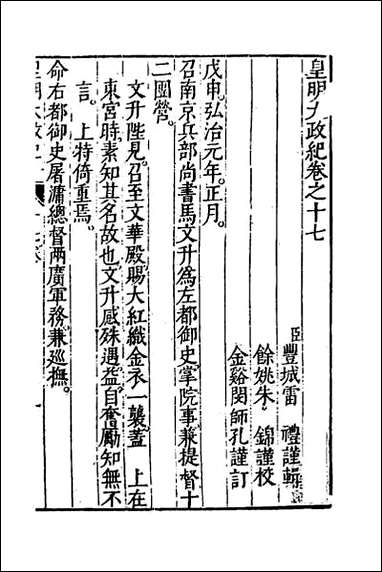 皇明大政紀卷之十七
臣豐城雷　禮謹輯
餘姚朱　錦謹校
金谿閔師孔謹訂
戊申。弘治元年。正月。
召南京兵部尚書馬文升為左都御史。掌院事。兼提督十
二團營。
文升陛見。召至文華殿。賜大紅織金衣一襲。蓋　上在
東宮時。素知其名故也。文升感殊遇。益自奮勵。知無不
言。　上特倚重焉。
命右都御史屠滽總督兩廣軍務。兼巡撫。